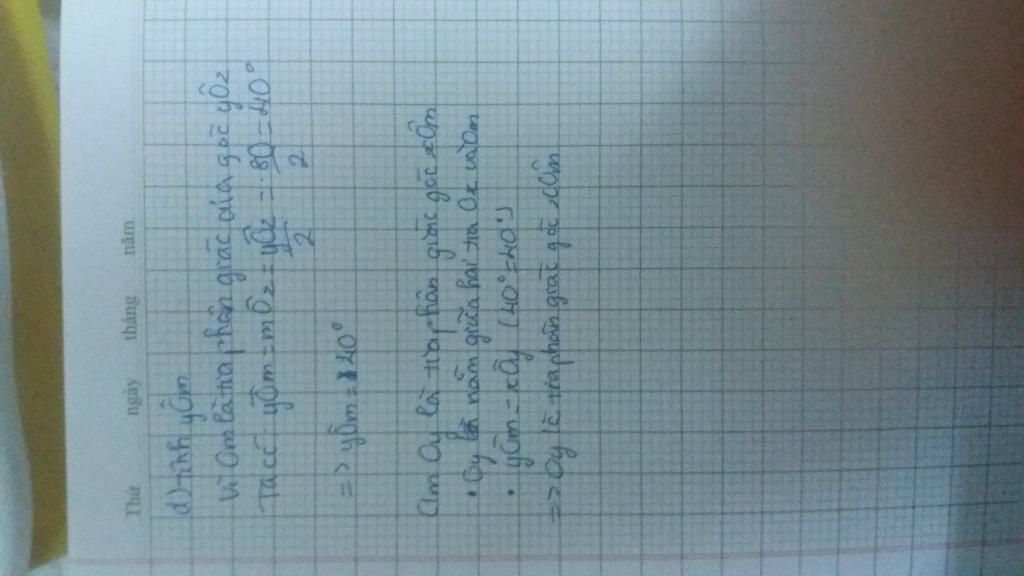 Thứ ngày tháng năm
d) tính yÔm
Vì Om là tia phân giác của góc yÔz
Ta có: yÔm = mÔz = yÔz/2 = 80/2 = 40°
=> yÔm = 40°
Cm Oy là tia phân giác góc xÔm
• Oy nằm giữa hai tia Ox và Om
• yÔm = xÔy (40° = 40°)
=> Oy là tia phân giác góc xÔm